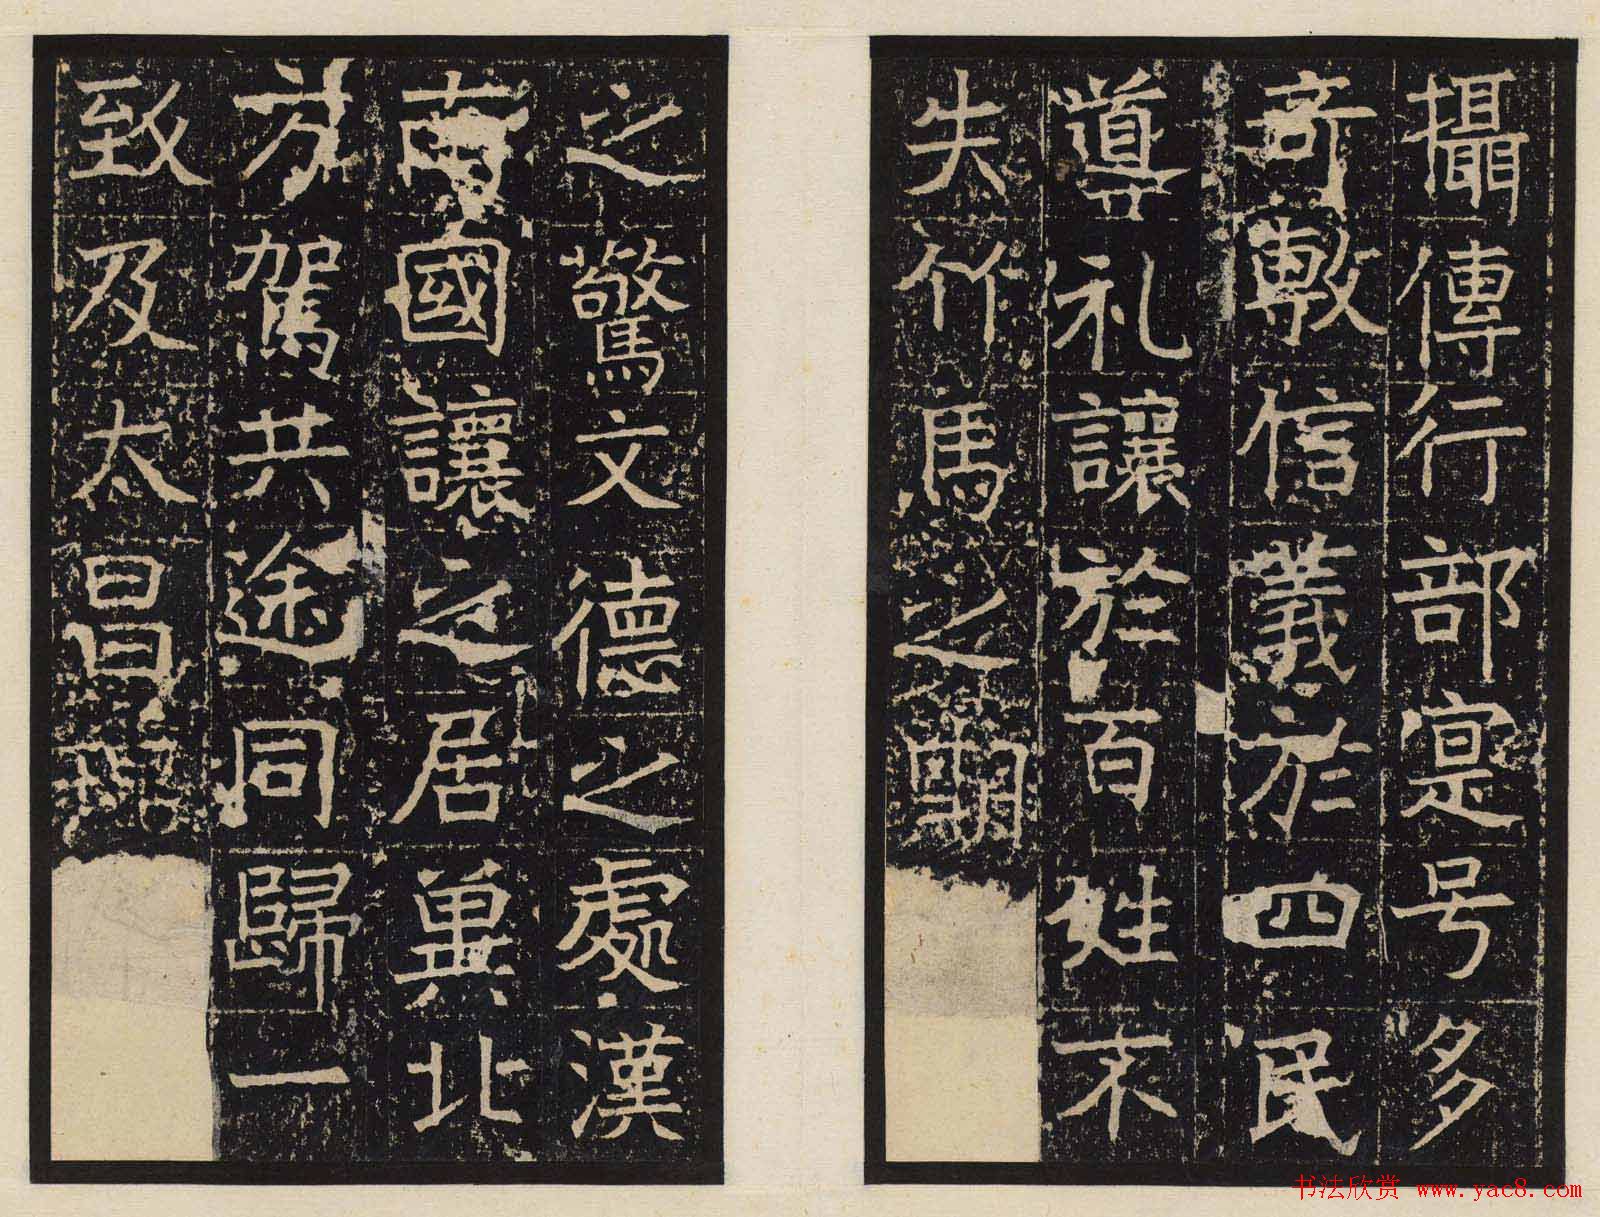 攝傳行部寔号多
奇敷信義於四民
導礼讓於百姓未
失竹馬之
之驚文德之處漢
南國讓之居冀北
方駕共途同歸一
致及太昌
书法欣赏 www.yac8.com